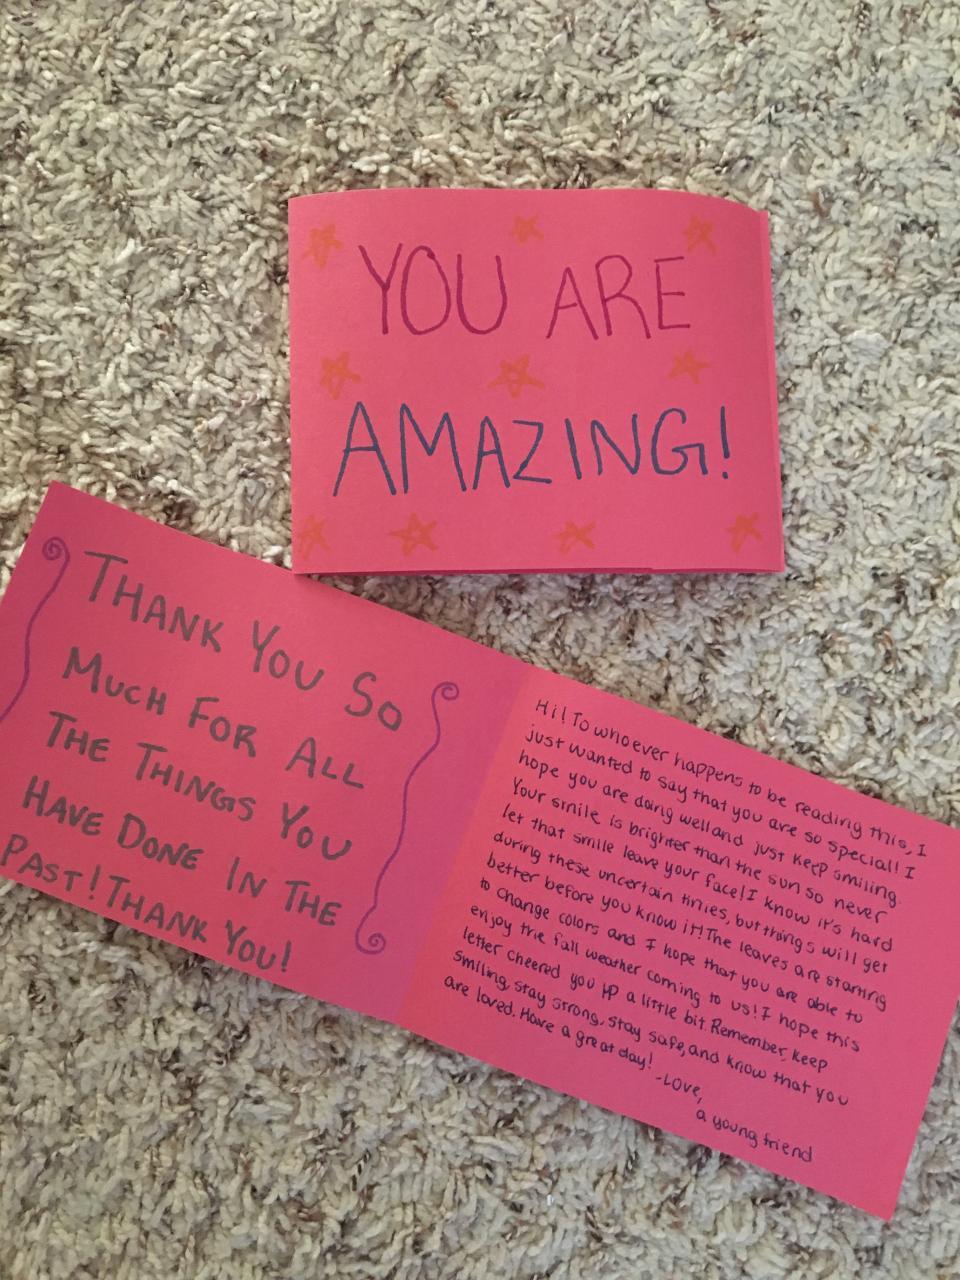 YOU ARE
AMAZING!
THANK YOU SO
MUCH FOR ALL
THE THINGS YOU
HAVE DONE IN THE
PAST! THANK YOU!
Hi! To whoever happens to be reading this, I
just wanted to say that you are so special! I
hope you are doing well and just keep smiling.
Your smile is brighter than the sun so never
let that smile leave your face! I know it's hard
during these uncertain times, but things will get
better before you know it! The leaves are starting
to change colors and I hope that you are able to
enjoy the fall weather coming to us! I hope this
letter cheered you up a little bit. Remember, keep
smiling, stay strong, stay safe, and know that you
are loved. Have a great day!
-Love,
a young friend